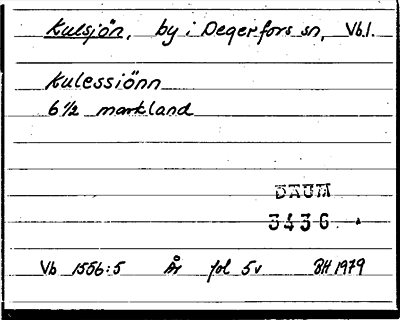 Kulsjön, by i Degerfors sn, Vb l.
Kulessiönn
6 1/2 markland
DAUM
3436
Vb 1556:5 År fol 5v BH 1979